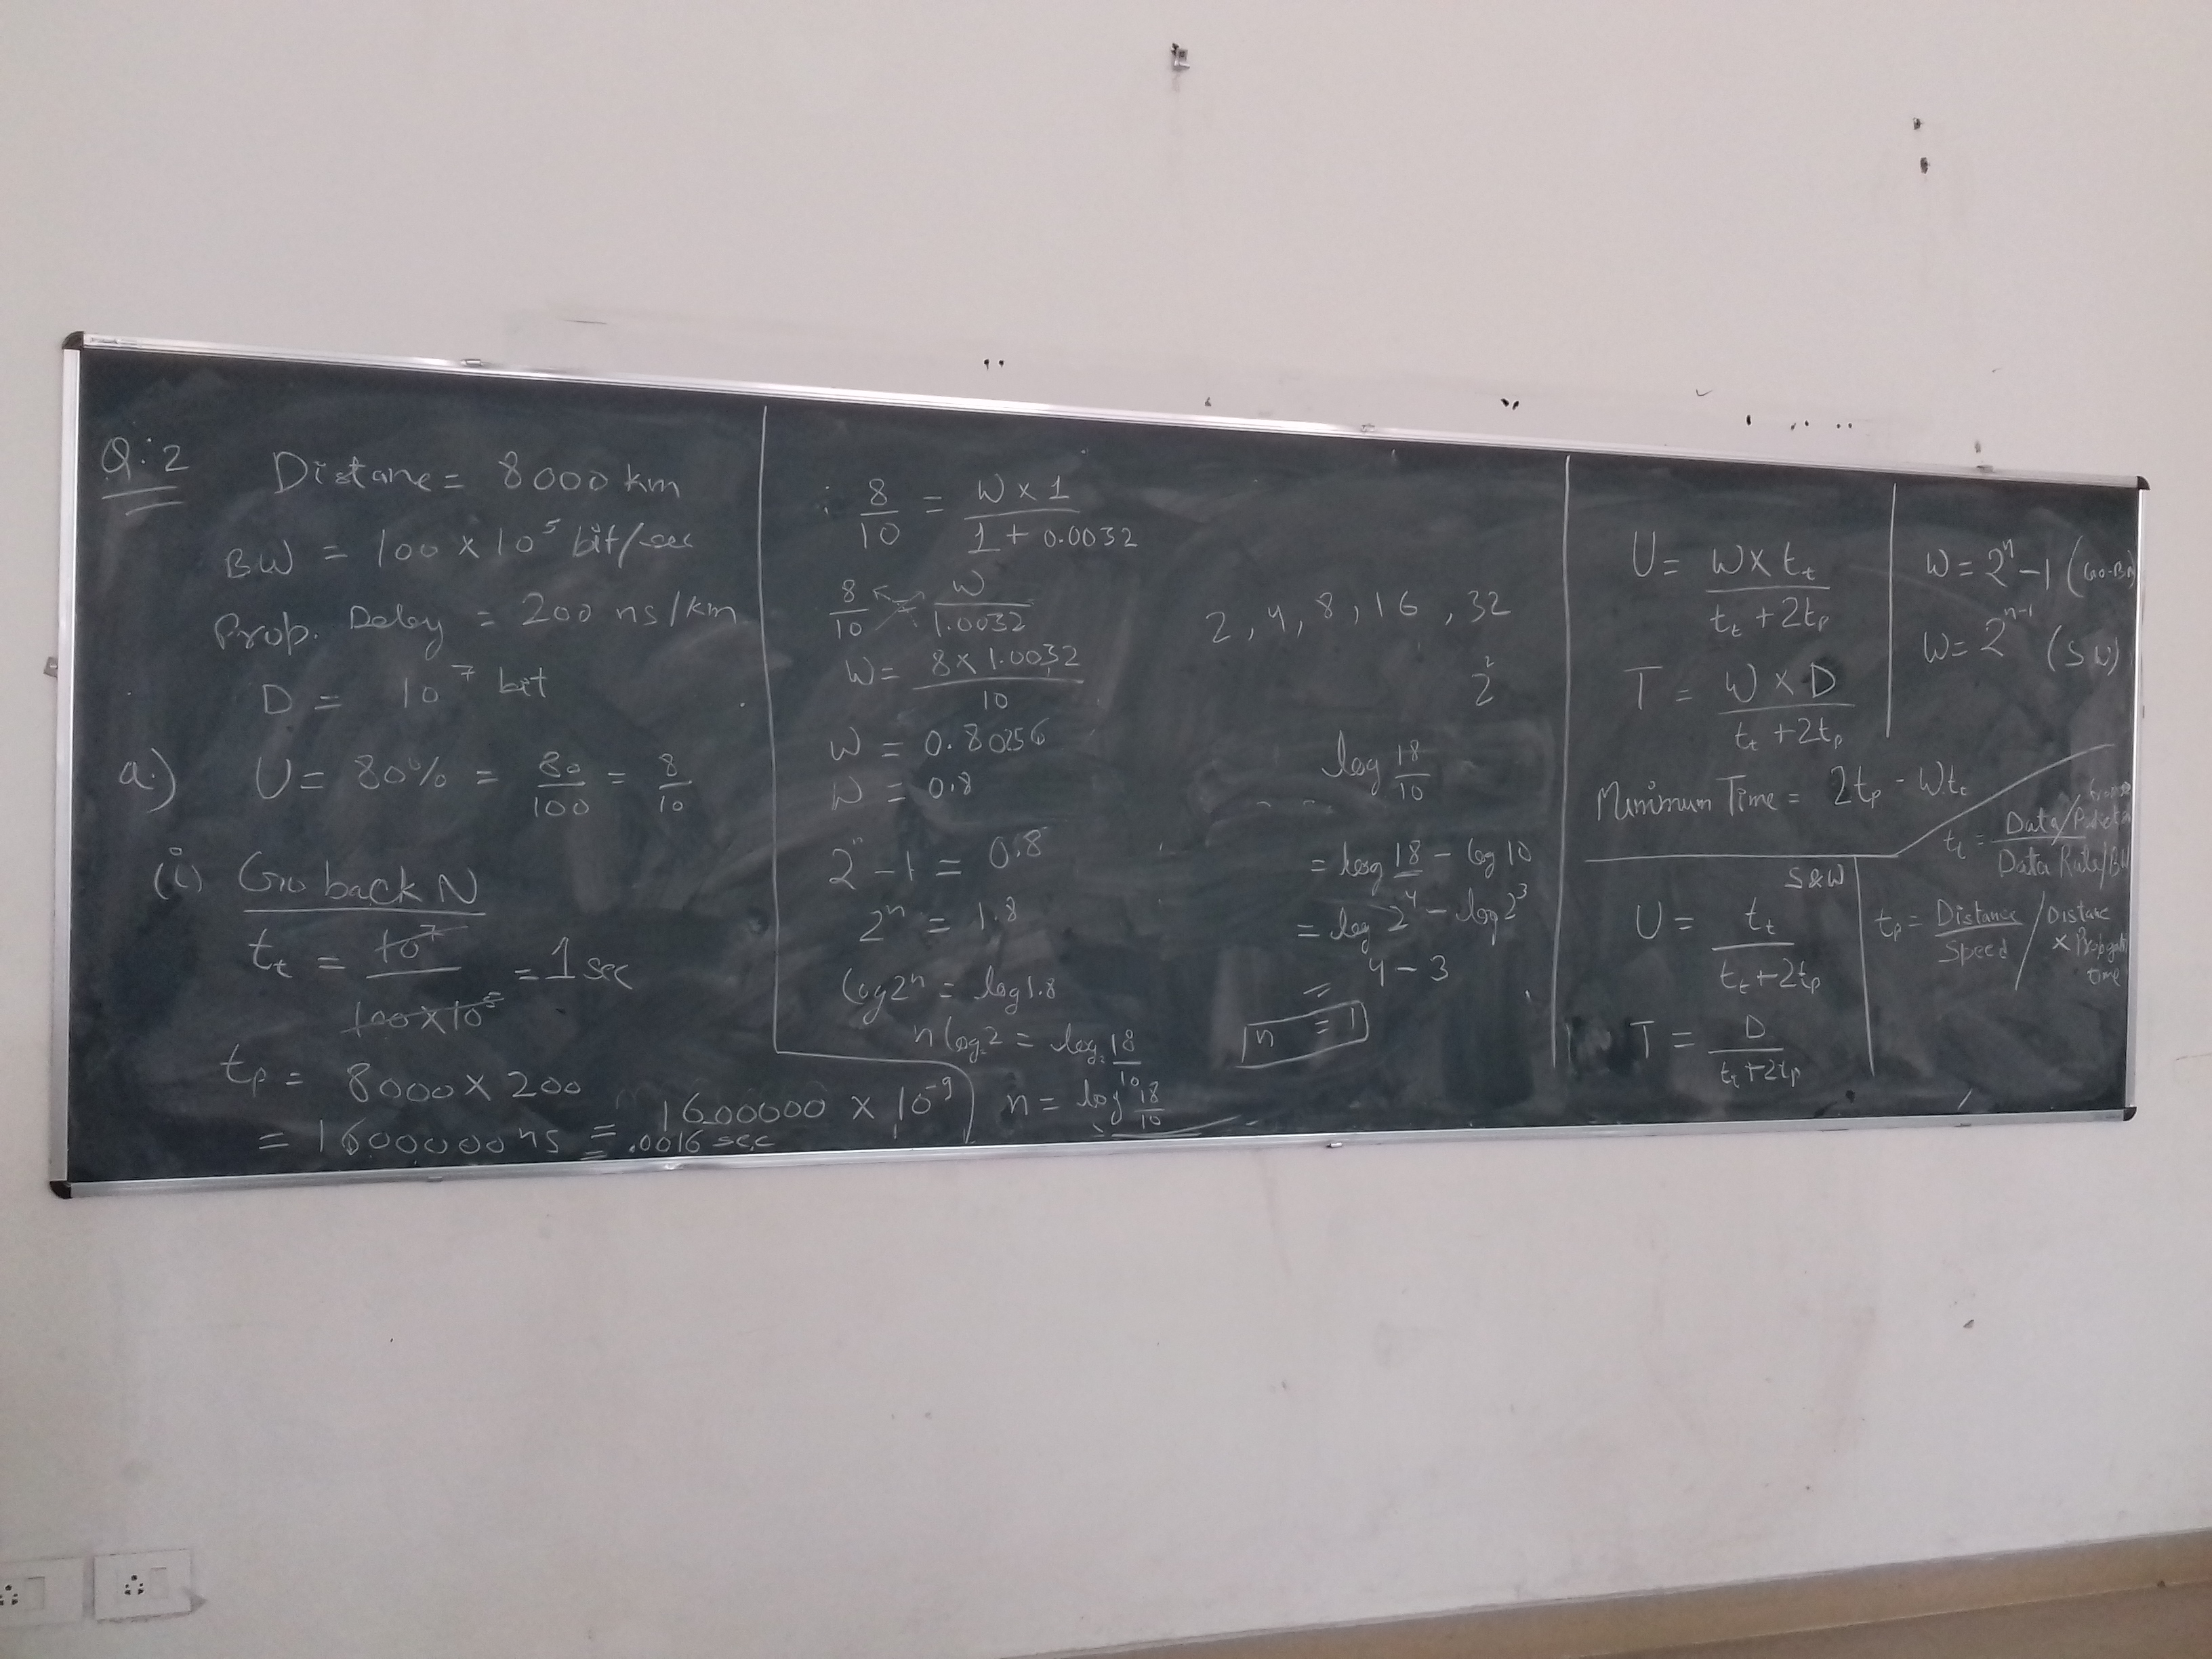 Q:2
Distane = 8000 km
BW = 100 × 10^5 bit/sec
Prop. Deley = 200 ns/km
D = 10^7 bit
a.) U = 80% = 80/100 = 8/10
(i) Go back N
t_t = 10^7 / 100×10^5 = 1 sec
t_p = 8000 × 200
= 1600000 ns = 1600000 × 10^-9
= .0016 sec
8/10 = W × 1 / 1 + 0.0032
8/10 W/1.0032
W = 8 × 1.0032 / 10
W = 0.80256
W = 0.8
2^n - 1 = 0.8
2^n = 1.8
log 2^n = log 1.8
n log_2 2 = log_2 18/10
n = log 18/10
2, 4, 8, 16, 32
2^2
log 18/10
= log 18 - log 10
= log 2^4 - log 2^3
= 4 - 3
n = 1
U = W × t_t / t_t + 2t_p
T = W × D / t_t + 2t_p
Minimum Time = 2t_p - Wt_t
W = 2^n - 1 (Go-BN
W = 2^n-1 (SW)
t_t = Data/Packet / Data Rate/BW
S&W
U = t_t / t_t + 2t_p
T = D / t_t + 2t_p
t_p = Distance / Speed / Distance × Propgati time